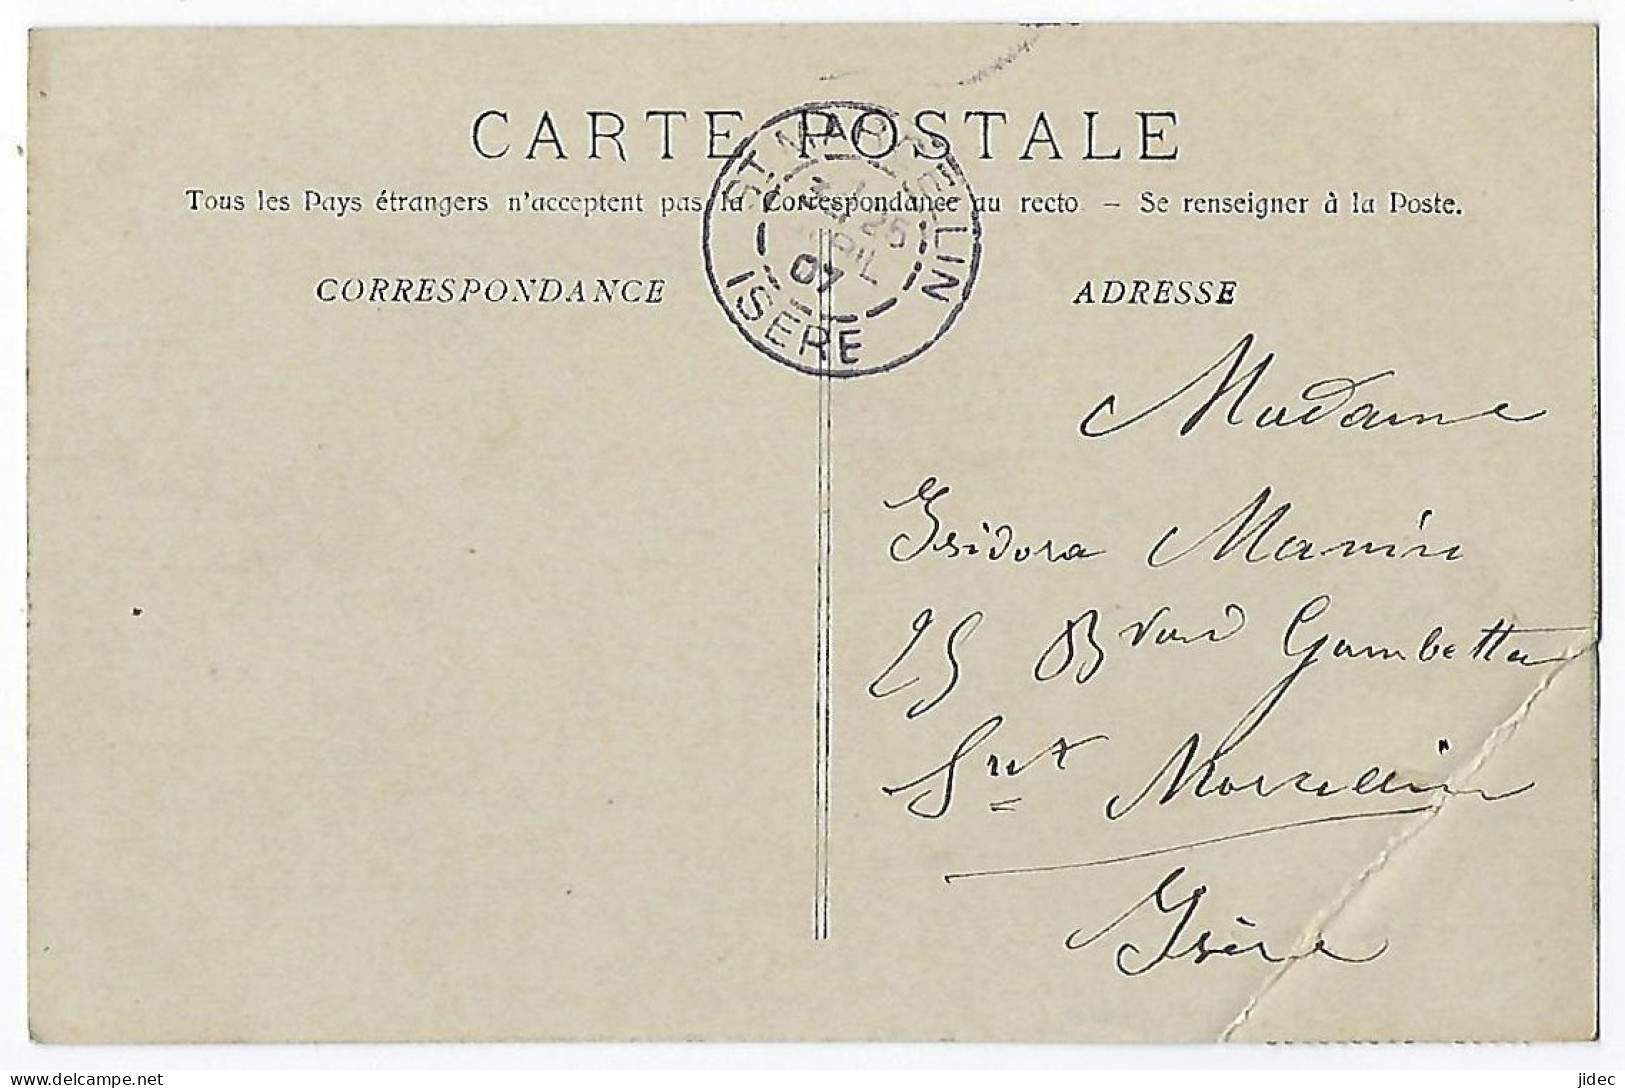 CARTE POSTALE
Tous les Pays étrangers n'acceptent pas la Correspondance au recto. - Se renseigner à la Poste.
CORRESPONDANCE
ADRESSE
ST. MARCELLIN
25
AVRIL
07
ISERE
Madame
Isidora Manin
25 Bvard Gambetta
Snt Marcellin
Isère
delcampe.net
jidec